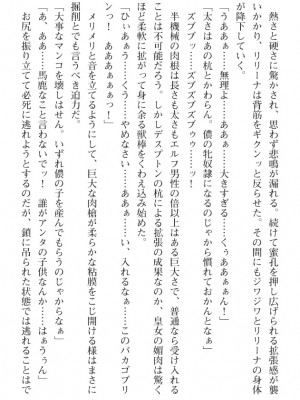 熱さと硬さに驚かされ、思わず悲鳴が漏れる。続けて蜜孔を押し広げる拡張感が襲
いかかり、リリーナは背筋をギクンッと反らせた。その間にもジワジワとリリーナの身体
が降下していく。
「うあああぁ……無理よ……ああぁ……大きすぎる……くぅああぁぁん！」
「太さはあの杭とかわらん。儂の牝奴隷になるのじゃから慣れておかんとなぁ」
ズブブッ……ズブブブゥゥ……ッ！
　半機械の肉根は長さも太さもエルフ男性の倍以上はある巨大さで、普通なら受け入れる
ことは不可能だろう。しかしデスプトンの杭による拡張の成果なのか、皇女の媚肉は驚く
ほど柔軟に拡がって身に余る獣棒をくわえ込み始めた。
「ひぃあぁぅ……くぅ……やめなさい……ああぁ……い、入れるなぁ……このバカゴブリ
ンッ！　あああぁぁっ！」
　メリメリと音を立てるようにして、巨大な肉槍が柔らかな粘膜をこじ開ける様はまさに
掘削とでも言うべき迫力だ。
「大事なマンコを壊しはせん。いずれ儂の子を産んでもらうのじゃからなぁ」
「あ、ああ……馬鹿なこと言わないでッ！　誰がアンタの子供なんか……はぁぅん」
　お尻を振り立てて必死に逃れようとするのだが、鎖に吊られた状態では逃れることはで